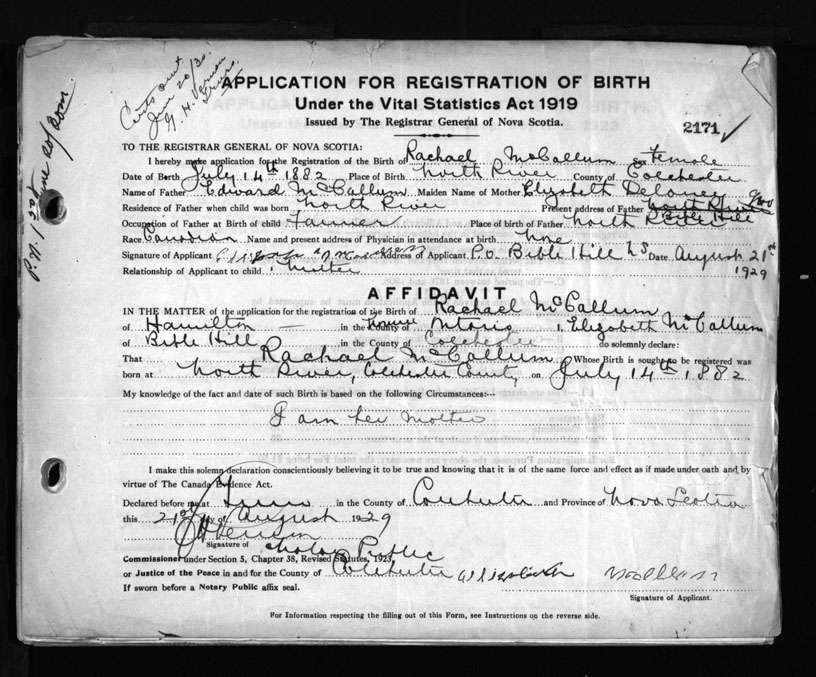 Certs sent
June 20/30
G. H. Vernon
Truro
APPLICATION FOR REGISTRATION OF BIRTH
Under the Vital Statistics Act 1919
Issued by The Registrar General of Nova Scotia.
2171
TO THE REGISTRAR GENERAL OF NOVA SCOTIA:
I hereby make application for the Registration of the Birth of Rachael McCallum Female
Date of Birth July 14th 1882 Place of Birth North River County of Colchester
Name of Father Edward McCallum Maiden Name of Mother Elizabeth Deloney
Residence of Father when child was born North River Present address of Father North River
Bible Hill
Occupation of Father at Birth of child Farmer Place of birth of Father North River
Race Canadian Name and present address of Physician in attendance at birth None
Signature of Applicant Address of Applicant P.O. Bible Hill NS Date August 21st
1929
Relationship of Applicant to child Mother
AFFIDAVIT
IN THE MATTER of the application for the registration of the Birth of Rachael McCallum
of Hamilton in the Ontario I, Elizabeth McCallum
of Bible Hill in the County of Colchester do solemnly declare:
That Rachael McCallum Whose Birth is sought to be registered was
born at North River, Colchester County, on July 14th 1882
My knowledge of the fact and date of such Birth is based on the following Circumstances:—
I am her Mother
I make this solemn declaration conscientiously believing it to be true and knowing that it is of the same force and effect as if made under oath and by
virtue of The Canada Evidence Act.
Declared before me at Truro in the County of Colchester and Province of Nova Scotia
this 21st day of August 1929
GH Vernon
Signature of Notary Public
Commissioner under Section 5, Chapter 38, Revised Statutes, 1923,
or Justice of the Peace in and for the County of Colchester
If sworn before a Notary Public affix seal.
Signature of Applicant.
For Information respecting the filling out of this Form, see Instructions on the reverse side.